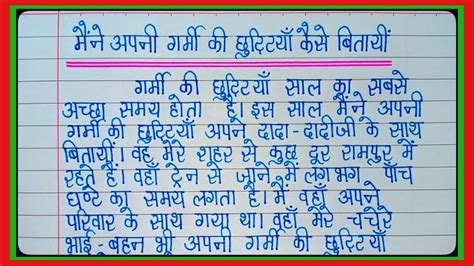 मैंने अपनी गर्मी की छुट्टियाँ कैसे बितायीं
गर्मी की छुट्टियाँ साल का सबसे
अच्छा समय होता है। इस साल मैंने अपनी
गर्मी की छुट्टियाँ अपने दादा-दादीजी के साथ
बितायीं। वह मेरे शहर से कुछ दूर रामपुर में
रहते हैं। वहाँ ट्रेन से जाने में लगभग पाँच
घण्टे का समय लगता है। मैं वहाँ अपने
परिवार के साथ गया था। वहाँ मेरे चचेरे
भाई-बहन भी अपनी गर्मी की छुट्टियाँ